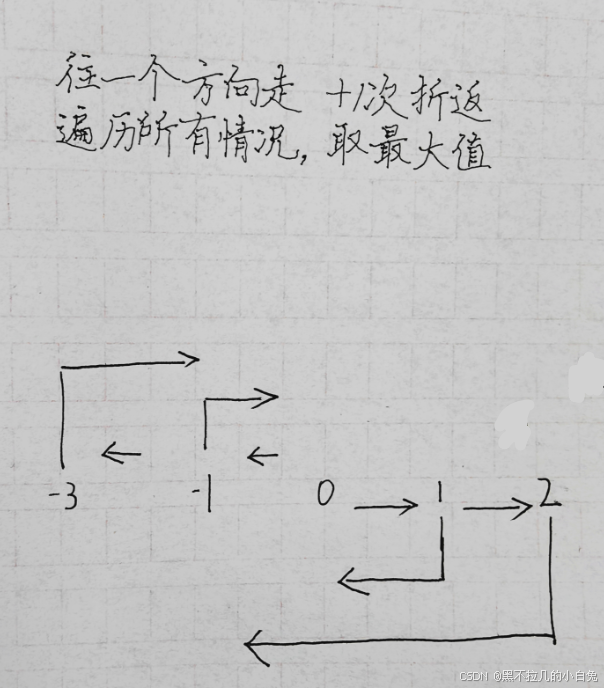 往一个方向走 +1次折返
遍历所有情况，取最大值
-3 -1 0 1 2
CSDN @黑不拉几的小白兔